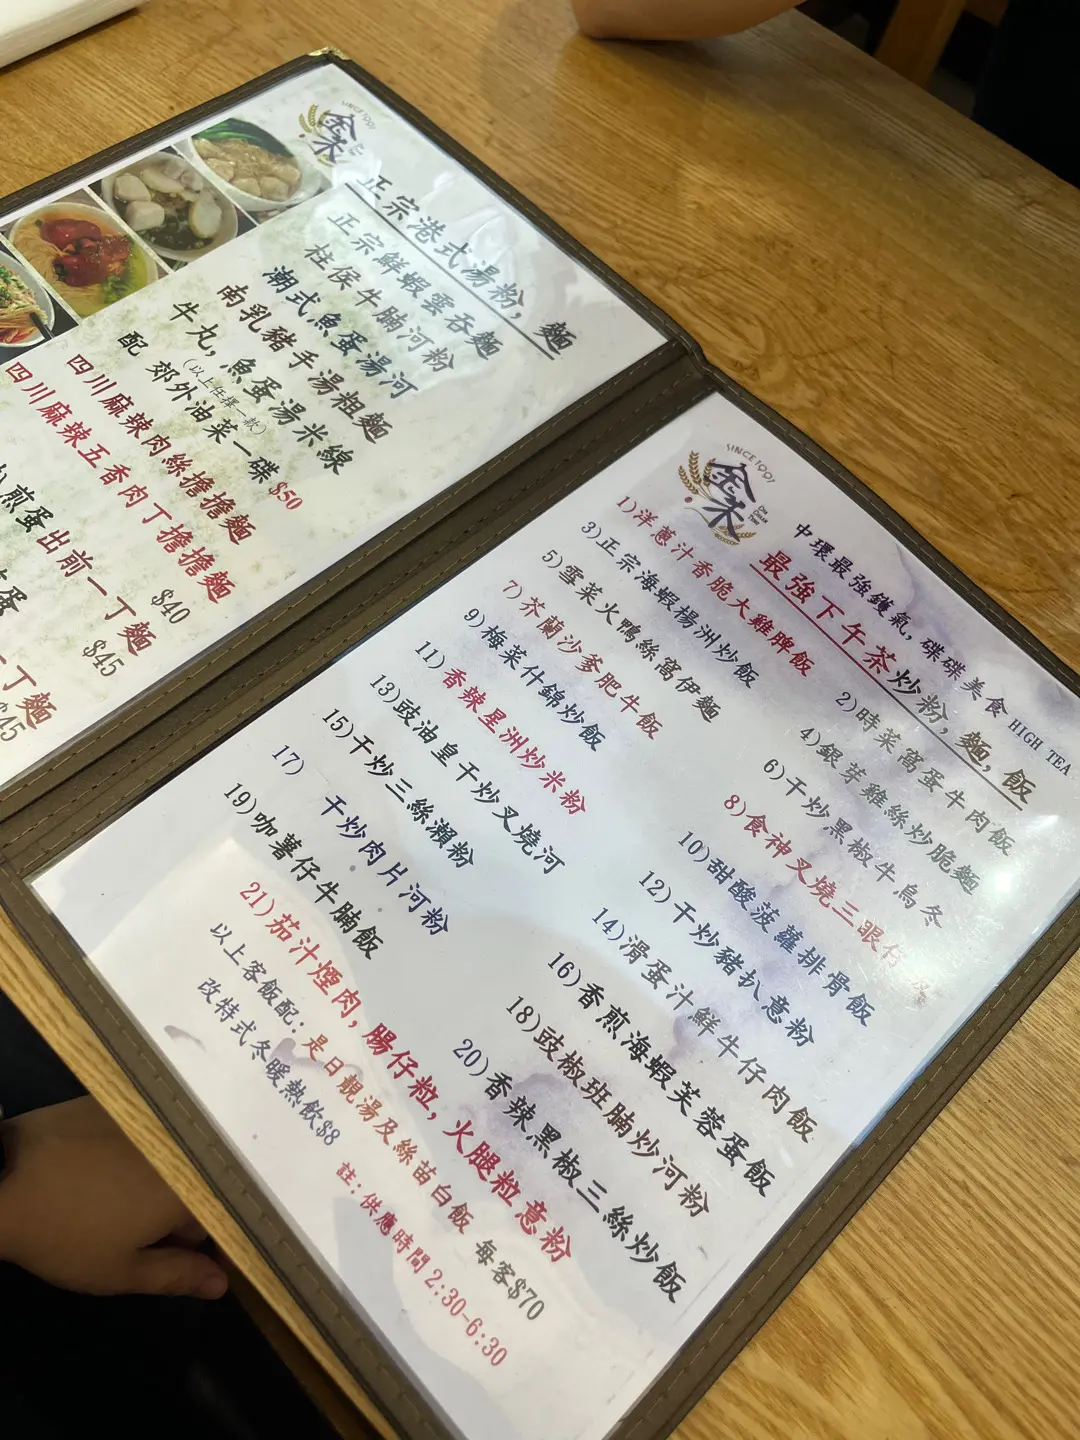 SINCE 1997
金禾
正宗港式湯粉，麵
正宗鮮蝦雲吞麵
柱侯牛腩河粉
潮式魚蛋湯河
南乳豬手湯粗麵
牛丸，魚蛋湯米線
(以上任擇一款)
配 郊外油菜一碟 $50
四川麻辣肉絲擔擔麵
四川麻辣五香肉丁擔擔麵
$40
煎蛋出前一丁麵
$45
蛋
丁麵
$45
SINCE 1997
金禾
中環最強鑊氣，碟碟美食 HIGH TEA
最強下午茶炒粉，麵，飯
1)洋蔥汁香脆大雞脾飯
2)時菜窩蛋牛肉飯
3)正宗海蝦楊洲炒飯
4)銀芽雞絲炒脆麵
5)雪菜火鴨絲窩伊麵
6)干炒黑椒牛烏冬
7)芥蘭沙爹肥牛飯
8)食神叉燒三眼仔
9)梅菜什錦炒飯
10)甜酸菠蘿排骨飯
11)香辣星洲炒米粉
12)干炒豬扒意粉
13)豉油皇干炒叉燒河
14)滑蛋汁鮮牛仔肉飯
15)干炒三絲瀨粉
16)香煎海蝦芙蓉蛋飯
17) 干炒肉片河粉
18)豉椒班腩炒河粉
19)咖薯仔牛腩飯
20)香辣黑椒三絲炒飯
21)茄汁煙肉，腸仔粒，火腿粒意粉
以上客飯配：是日靚湯及絲苗白飯 每客$70
改特式冬暖熱飲$8
註：供應時間 2:30-6:30